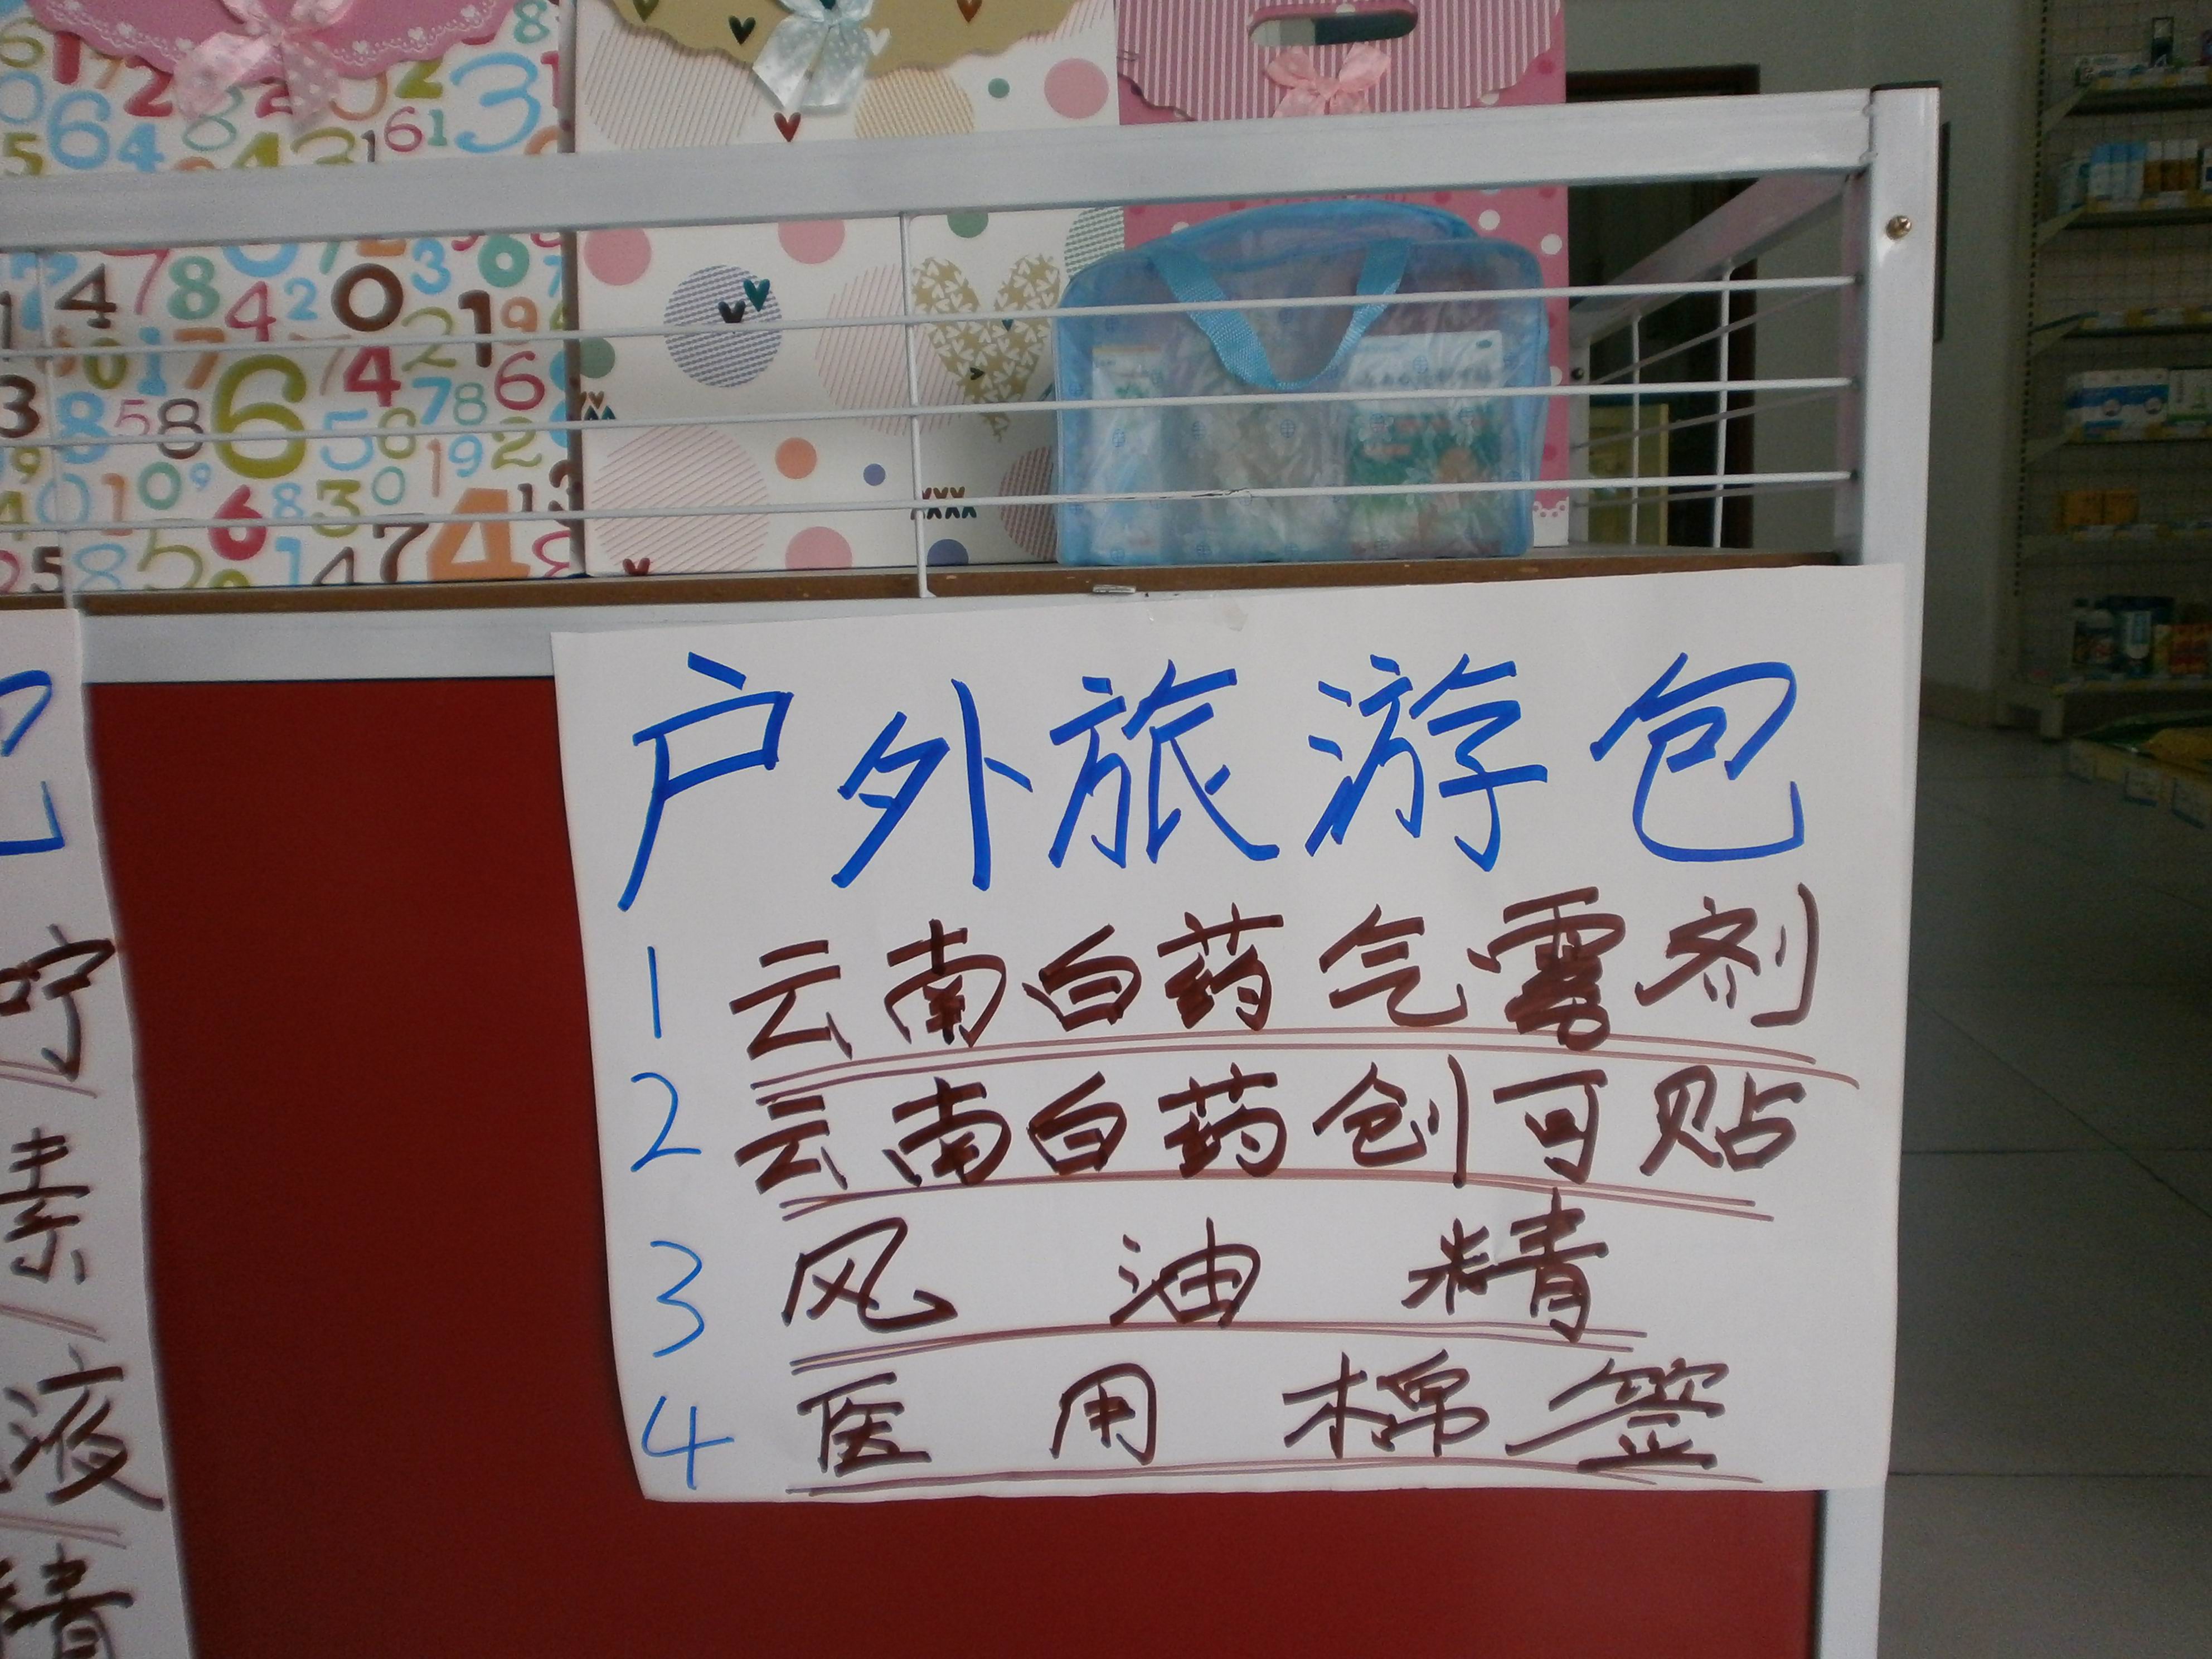 户外旅游包
1 云南白药气雾剂
2 云南白药创可贴
3 风油精
4 医用棉签
包
咛
素
液
精